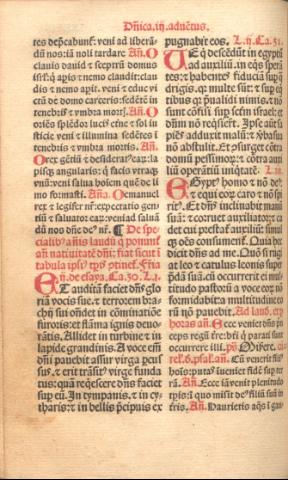 Dñica.iij.aduētus.
tes dep̄cabunt: veni ad liberā
dū nos: iā noli tardare Añ. O
clauis dauid ⁊ sceptrū domus
isrł: q̄ apis ⁊ nemo claudit: clau
dis ⁊ nemo apit. veni ⁊ educ vi
ctū de domo carceris: sedētē in
tenebris ⁊ vmbra mortis. Añ. O
oriēs splēdor lucis etne ⁊ sol iu
sticie veni ⁊ illumina sedētes ī
tenebris ⁊ vmbra mortis. Añ.
O rex gētiū ⁊ desiderat⁹ ear: la
pisq̄ angularis: q̄ facis vtraq̄
vnū: veni salua hoīem quē de li
mo formasti. Aña. O emanuel
rex ⁊ legifer nr̄: expectatio gen
tiū ⁊ saluator ear: veni ad saluā
dū nos dñe de⁹ nr̄. ¶ De spe
cialib⁹ añis laudū q̄ ponunt̄
an̄ natiuitatē dñi: fiat sicut ī
tabula ip̄si⁹ tp̄is ptinet. Fīta
En. de esaya. Ca. 30. L. j.
Et audītā faciet dñs glo
riā vocis sue. ⁊ terrorem bra
chij sui ondet in cōminatiōe
furoris: et flāma ignis deuo
rātis. Allidet in turbine ⁊ in
lapide grandinis. A voce em̄
dñi pauebit assur virga percus
sus. ⁊ erit trāsit⁹ virge funda
tus: quā reqescere dñs faciet
sup eū. In tympanis. ⁊ in cy
tharis: ⁊ in bellis p̄cipuis ex
pugnabit eos. L. ij. Ca. 31.
Ue q̄ descēdūt in egyptū
ad auxiliū. in eqs sperā
tes: ⁊ habentes fiduciā sup q̄
drigis. qr multe sūt: ⁊ sup eq
tibus qr p̄ualidi nimis. ⁊ nō
sunt cōfisi sup sctm̄ israel: et
dnm̄ nō reqsierūt. Ipse aūt sa
piēs adduxit malū: ⁊ v̄ba sua
nō abstulit. Et ɔsurget cōtra
domū pessimor: ⁊ cōtra auxi
liū operātiū iniqtatē. L. iij.
Egypt⁹ homo ⁊ nō de⁹:
⁊ equi eor caro ⁊ nō spi
rit⁹. Et dñs inclinabit manū
suā: ⁊ corruet auxiliator: ⁊ ca
det cui prestat̄ auxiliū: simul
q̄ oēs consument̄. Quia hec
dicit dñs ad me. Quō si rugi
at leo ⁊ catulus leonis sup p̄
dā suā. cū occurrerit ei mul
titudo pastorū a voce eor nō
formidabit: ⁊ a multitudine eo
rū nō pauebit. Ad laud. et p
horas añ. Ecce veniet dñs pn
ceps regū tr̄e: bti q̄ parati sunt
occurrere illi. ps̄. Miserē. cū
reliq̄. 6. psał. añ. Cū venerit fili⁹
hoīs: putas inueniet fidē sup ter
rā. Añ. Ecce iā venit plenitudo
tp̄is: ī quo misit de⁹ filiū suū in
tr̄is. Añ. Haurietis aq̄s ī gau